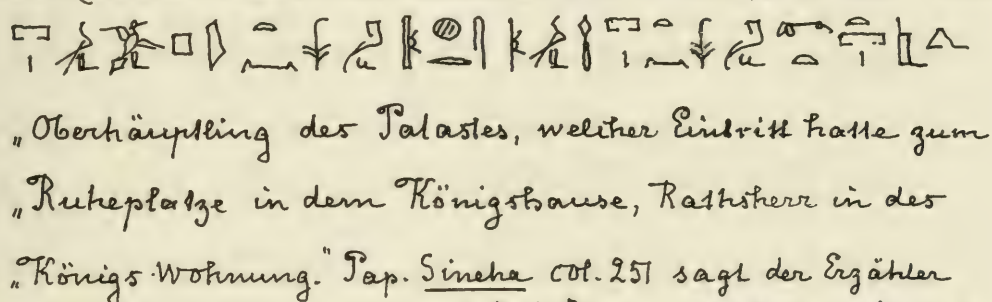 „Oberhäuptling des Palastes, welcher Eintritt hatte zum
„Ruheplatze in dem Königshause, Rathsherr in des
„Königs Wohnung." Pap. Sineha col. 251 sagt der Erzähler